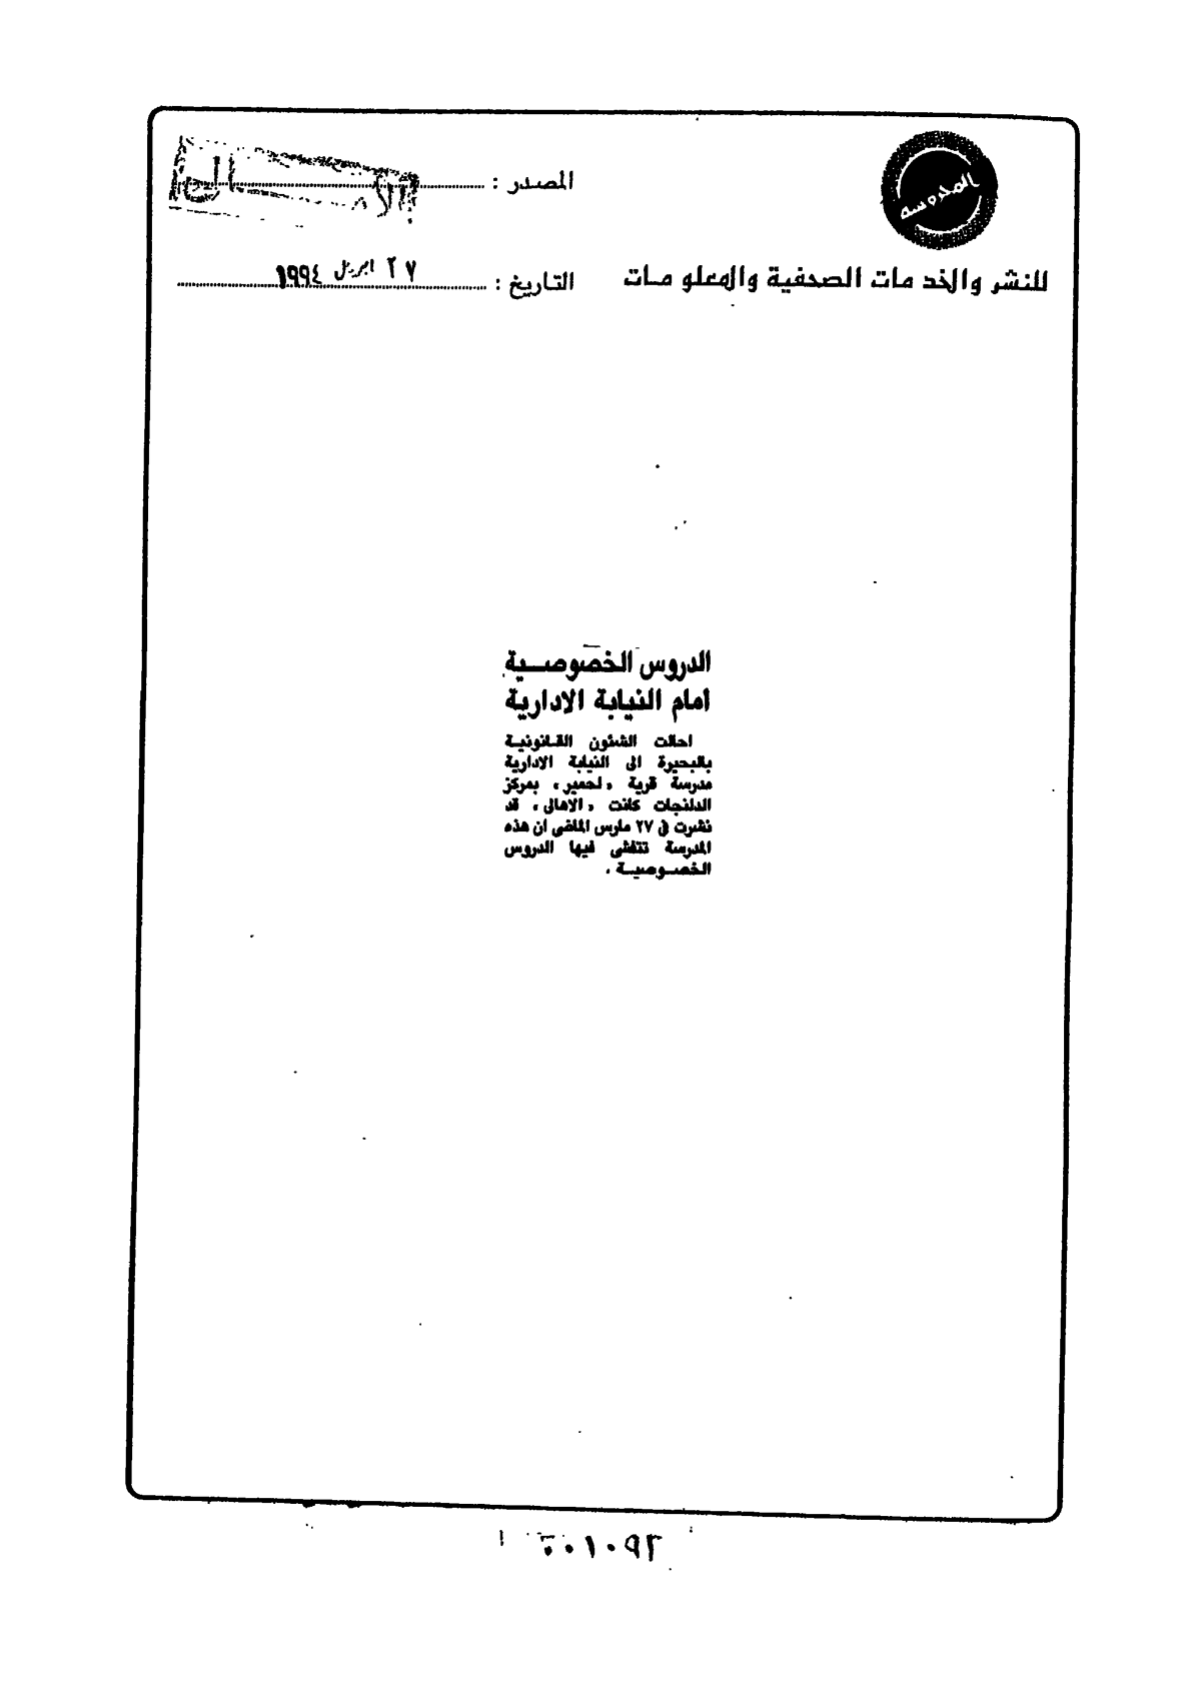 المحروسة
المصدر : الأهالى
للنشر والخد مات الصحفية والمعلو مات
التاريخ : ٢٧ ابريل ١٩٩٤
الدروس الخصوصية
امام النيابة الادارية
احالت الشئون القانونية
بالبحيرة الى النيابة الادارية
مدرسة قرية «لحمير» بمركز
الدلنجات كانت «الاهالى» قد
نشرت فى ٢٧ مارس الماضى ان هذه
المدرسة تتفشى فيها الدروس
الخصوصية .